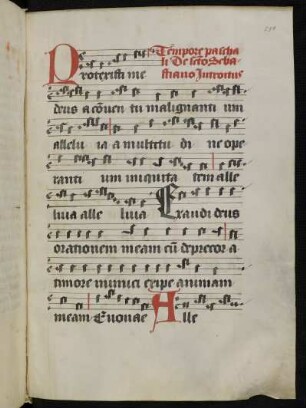 Tempore pascha
li De scto Seba
stiano Introitus
Protexisti me
deus a cōven tu malignanti um
allelu ia a multitu di ne ope
ranti um iniquita tem alle
luia alle luia Exaudi deus
orationem meam cū deprecor a
timore inimici eripe animam
meam Euouae Alle